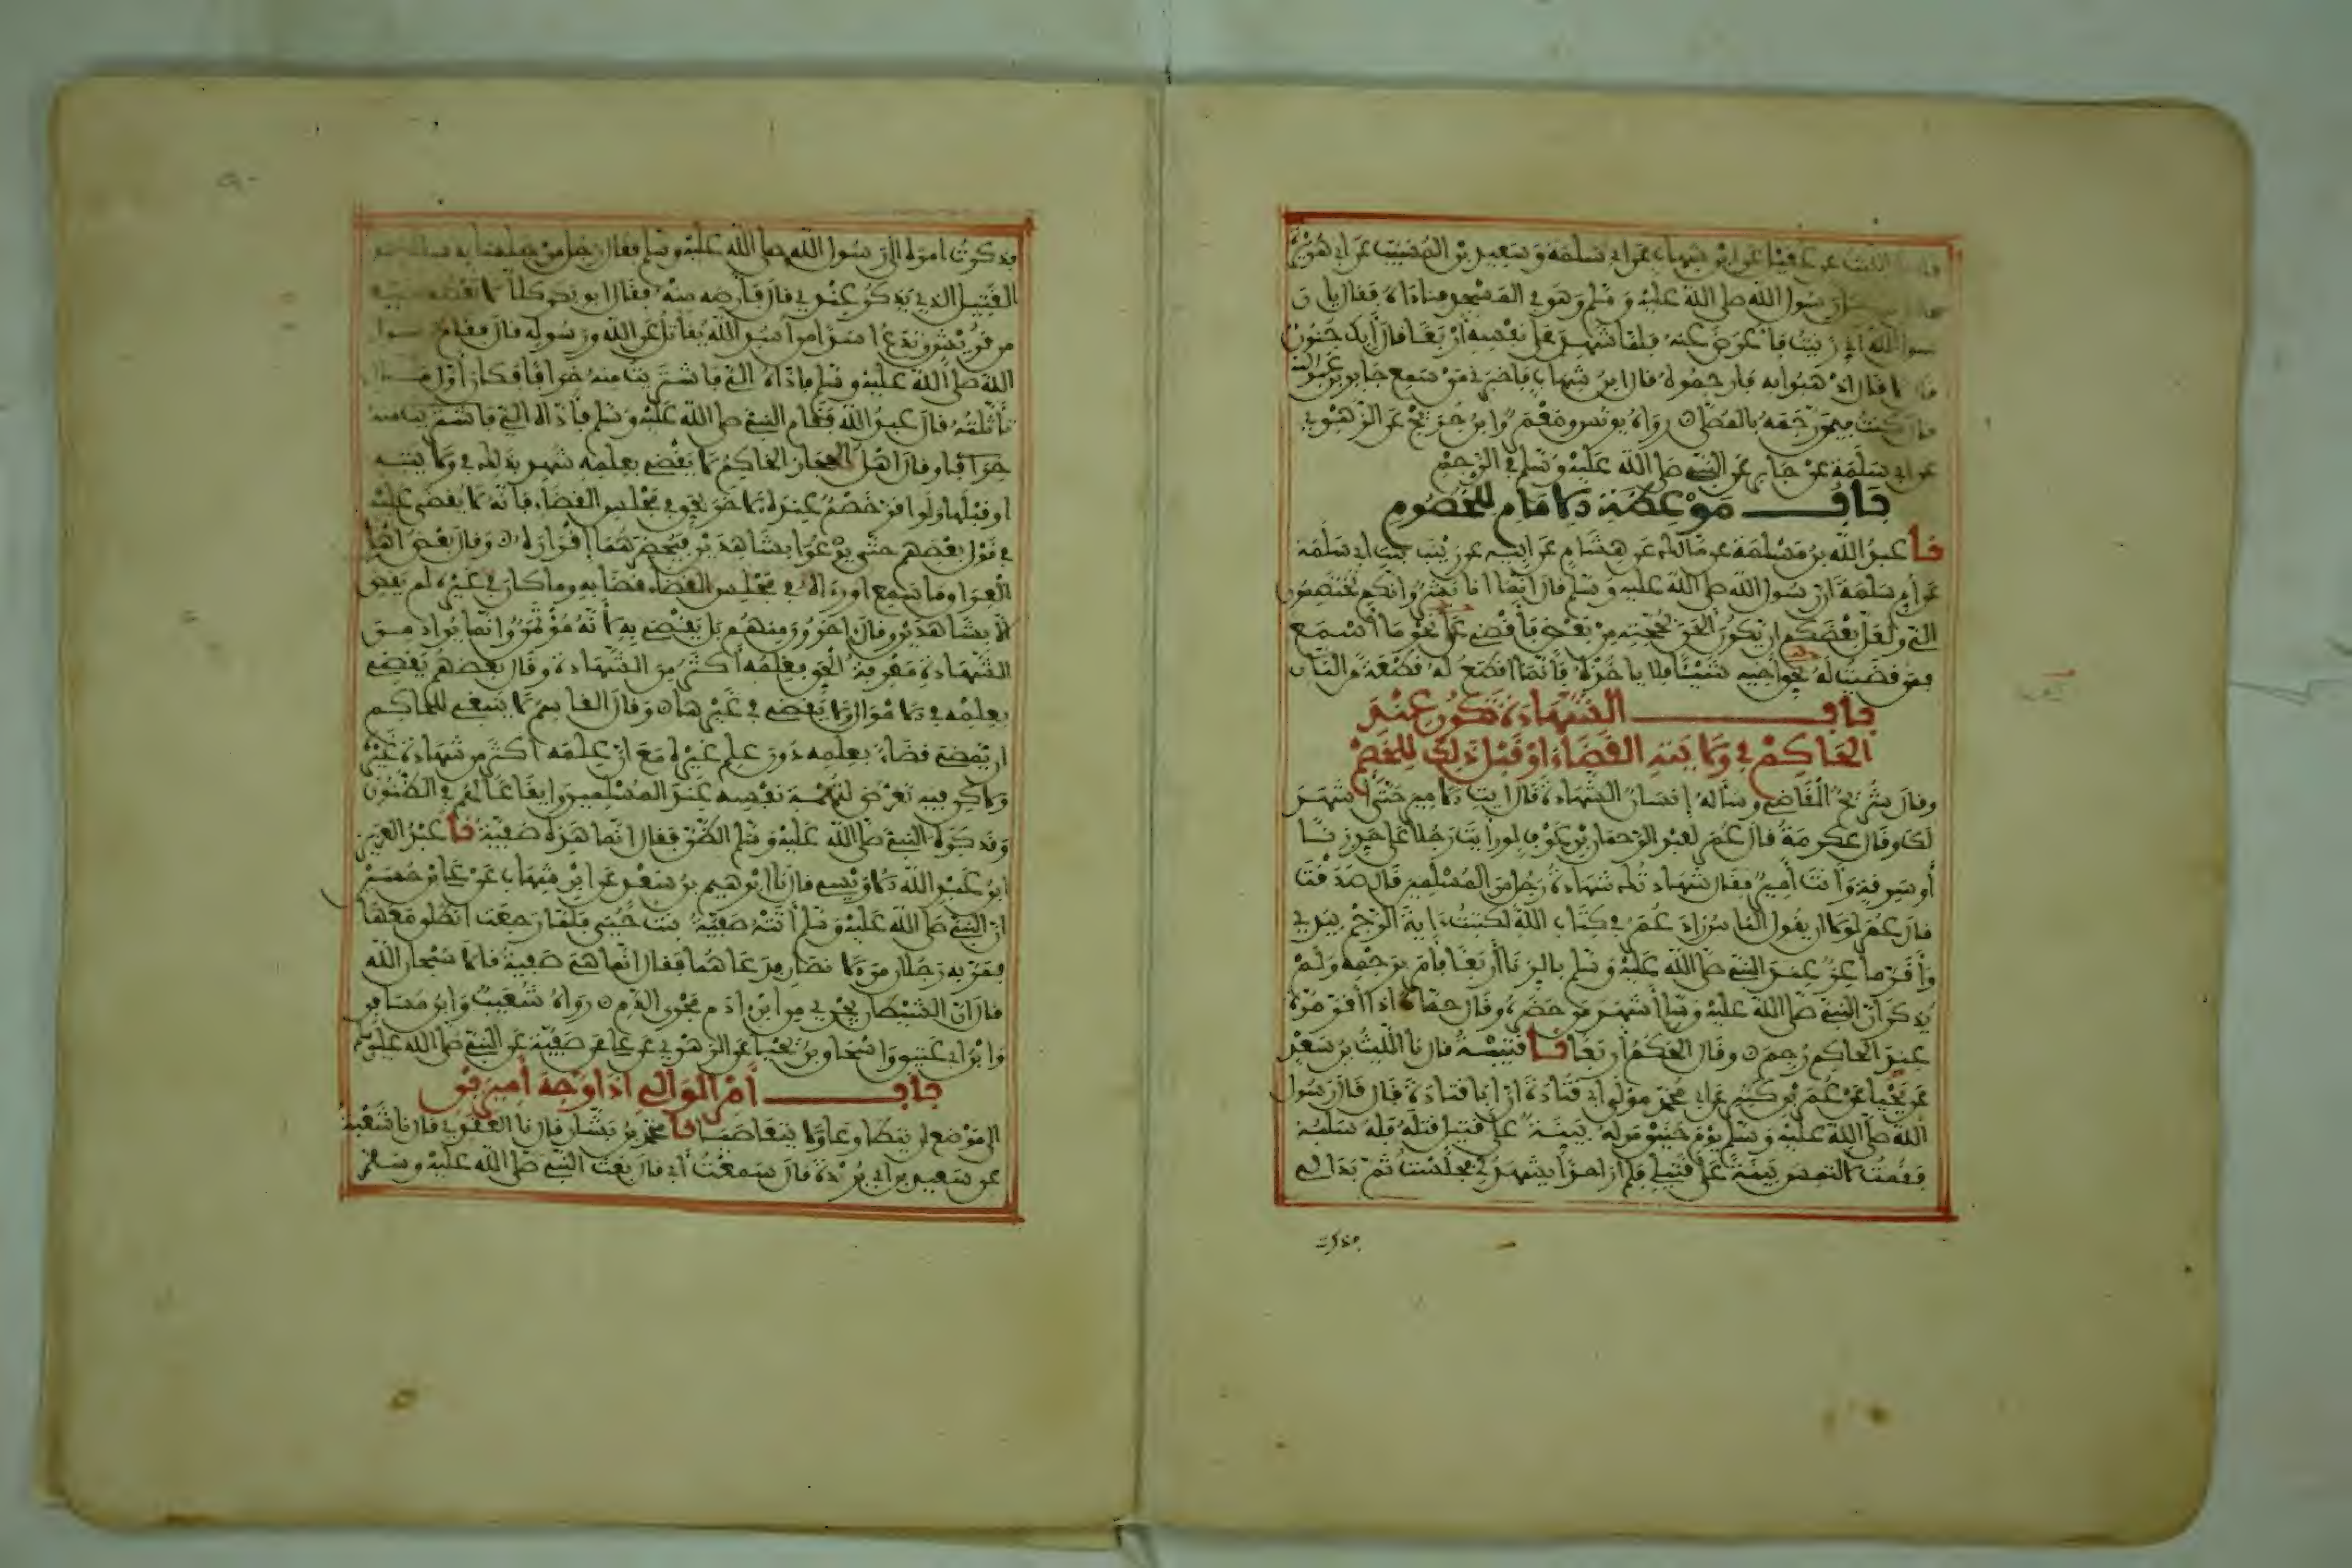 الليث عن عقيل عن ابن شهاب عن ابي سلمة وسعيد بن المسيب عن ابي هريرة
رسول الله صلى الله عليه وسلم وهو في المسجد فناداه فقال يا ر
سول الله اني زنيت فاعرض عنه فلما شهد على نفسه اربعا قال ابك جنون
قال لا قال اذهبوا به فارجموه قال ابن شهاب فاخبرني من سمع جابر بن عبد الله
قال كنت فيمن رجمه بالمصلى رواه يونس ومعمر وابن جريج عن الزهري
عن ابي سلمة عن جابر عن النبي صلى الله عليه وسلم في الرجم
باب موعظة الامام للخصوم
نا عبد الله بن مسلمة عن مالك عن هشام عن ابيه عن زينب بنت ابي سلمة
عن ام سلمة ان رسول الله صلى الله عليه وسلم قال انما انا بشر وانكم تختصمون
الي ولعل بعضكم ان يكون الحن بحجته من بعض فاقضي على نحو ما اسمع
فمن قضيت له بحق اخيه شيئا فلا ياخذه فانما اقطع له قطعة من النار
باب الشهادة تكون عند
الحاكم في ولايته القضاء او قبل ذلك للخصم
وقال شريح القاضي وساله انسان الشهادة قال ايت الامير حتى اشهد
لك وقال عكرمة قال عمر لعبد الرحمان بن عوف لو رايت رجلا على حد زنا
او سرقة وانت امير فقال شهادتك شهادة رجل من المسلمين قال صدقت
قال عمر لولا ان يقول الناس زاد عمر في كتاب الله لكتبت ءاية الرجم بيدي
واقر ماعز عند النبي صلى الله عليه وسلم بالزنا اربعا فامر برجمه ولم
يذكر ان النبي صلى الله عليه وسلم اشهد من حضره وقال حماد اذا اقر مرة
عند الحاكم رجم وقال الحكم اربعا نا قتيبة قال نا الليث بن سعد
عن يحيا عن عمر بن كثير عن ابي محمد مولى ابي قتادة ان ابا قتادة قال قال رسول
الله صلى الله عليه وسلم يوم حنين من له بينة على قتيل قتله فله سلبه
فقمت لالتمس بينة على قتيلي فلم ار احدا يشهد لي فجلست ثم بدا لي
فذكرت
فذكرت امره الى رسول الله صلى الله عليه وسلم فقال رجل من جلسائه
القتيل الذي يذكر عندي قال فارضه منه فقال ابو بكر كلا لا تعطه
من قريش وتدع اسدا من اسد الله يقاتل عن الله ورسوله قال فقام رسول
الله صلى الله عليه وسلم فاداه الي فاشتريت منه خرافا فكان اول مال
تاثلته قال عبد الله فقام النبي صلى الله عليه وسلم فاداه الي فاشتريت منه
خرافا وقال اهل الحجاز الحاكم لا يقضي بعلمه شهد بذلك في ولايته
او قبلها ولو اقر خصم عنده لاخر بحق في مجلس القضاء فانه لا يقضى عليه
في قول بعضهم حتى يدعوا بشاهدين فيحضرهما اقراره وقال بعض اهل
العراق ما سمع او رءاه في مجلس القضاء قضا به وما كان في غيره لم يقض
الا بشاهدين وقال اخرون منهم بل يقضي به لانه مؤتمن وانما يراد من
الشهادة معرفة الحق فعلمه اكثر من الشهادة وقال بعضهم يقضي
بعلمه في الاموال ولا يقضي في غيرها وقال القاسم لا ينبغي للحاكم
ان يمضي قضاء بعلمه دون علم غيره مع ان علمه اكثر من شهادة غيره
ولاكن فيه تعرض لتهمة نفسه عند المسلمين وايقاعا لهم في الظنون
وقد كره النبي صلى الله عليه وسلم الظن فقال انما هذه صفية نا عبد العزيز
ابن عبد الله الاويسي قال نا ابرهيم بن سعد عن ابن شهاب عن علي بن حسين
ان النبي صلى الله عليه وسلم اتته صفية بنت حيي فلما رجعت انطلق معها
فمر به رجلان من الانصار فدعاهما فقال انما هي صفية قالا سبحان الله
قال ان الشيطان يجري من ابن ادم مجرى الدم رواه شعيب وابن مسافر
وابن ابي عتيق واسحاق بن يحيا عن الزهري عن علي عن صفية عن النبي صلى الله عليه وسلم
باب امر الوالي اذا وجه اميرين
الى موضع ان يتطاوعا ولا يتعاصيا نا محمد بن بشار قال نا العقدي قال نا شعبة
عن سعيد بن ابي بردة قال سمعت ابي قال بعث النبي صلى الله عليه وسلم